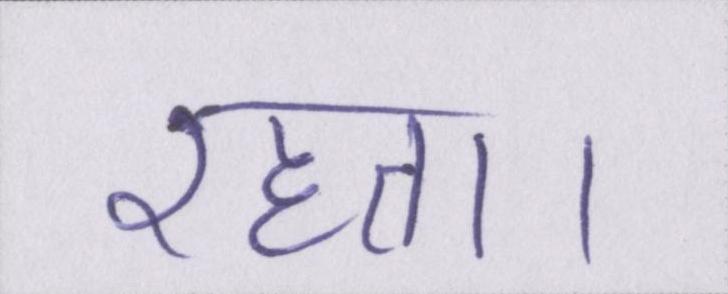 रहता।